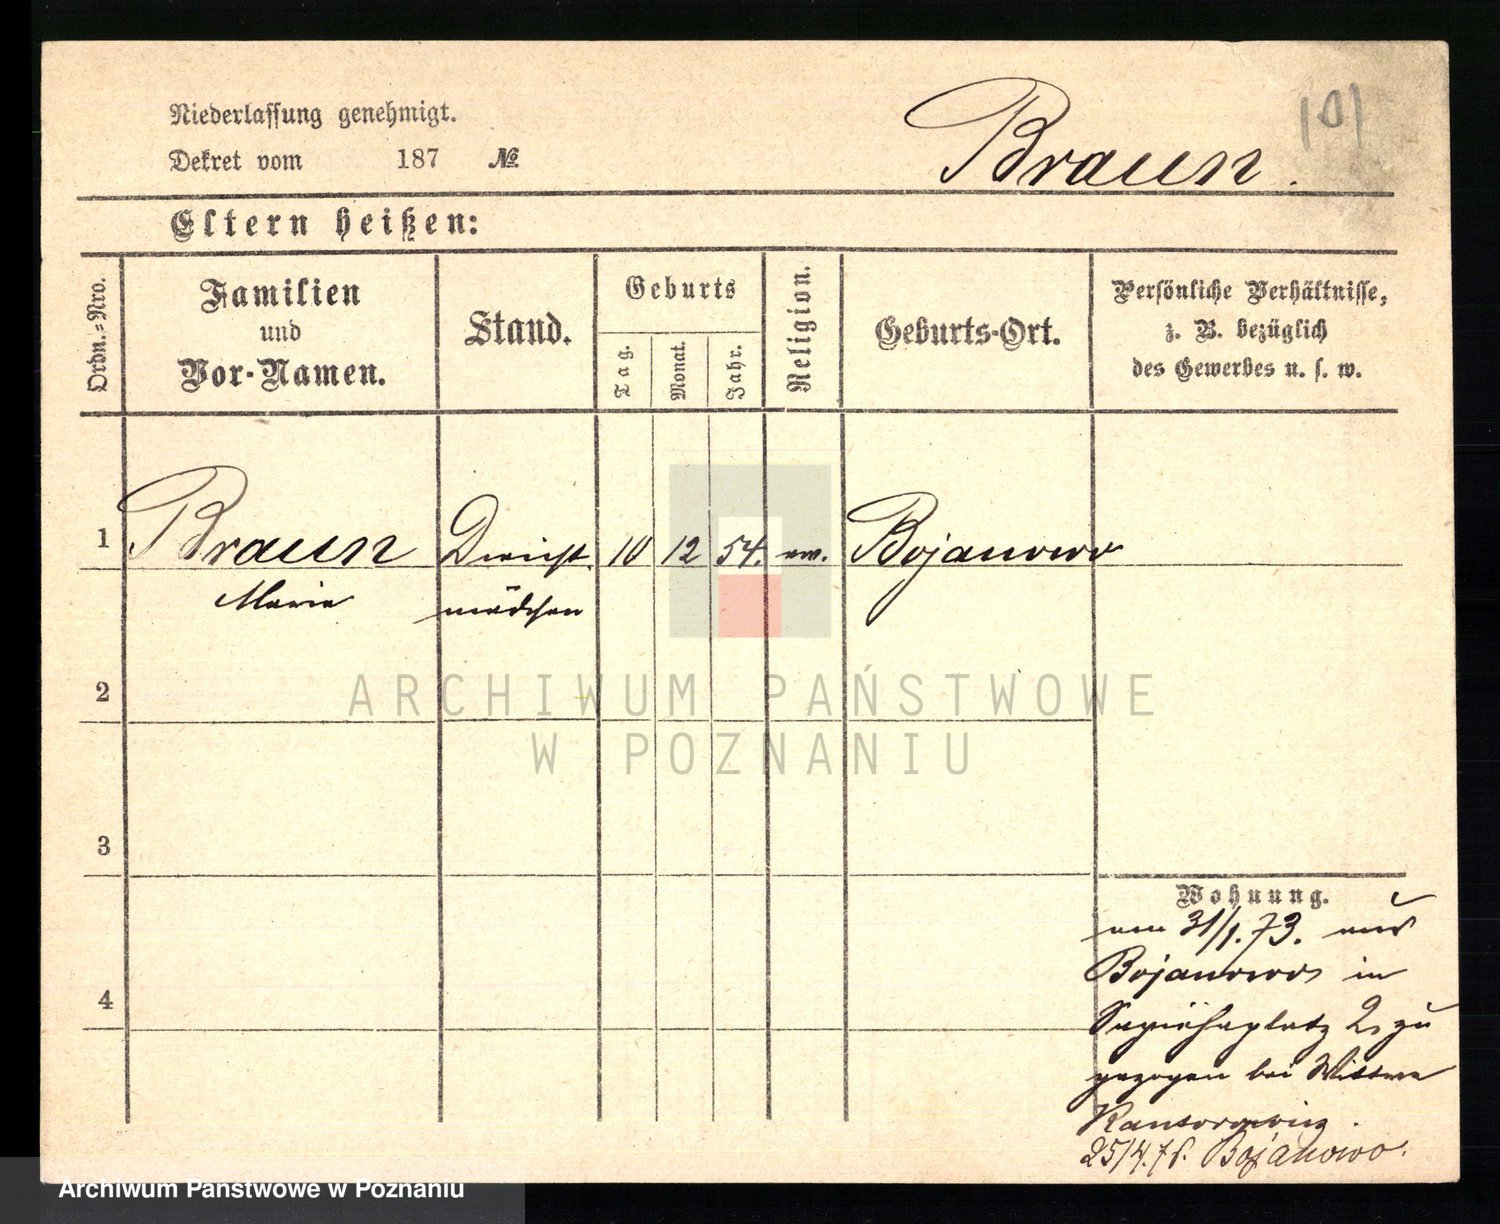 Niederlassung genehmigt.
Dekret vom 187 №
Braun.
101
Eltern heißen:
Ordn.=Nro.
Familien
und
Vor-Namen.
Stand.
Geburts
Tag.
Monat.
Jahr.
Religion.
Geburts-Ort.
Persönliche Verhältnisse,
z. B. bezüglich
des Gewerbes u. s. w.
1 Braun Dienst 10 12 54. ev. Bojanowo
Marie mädchen
2
ARCHIWUM PAŃSTWOWE
W POZNANIU
3
4
Wohnung.
am 31/1.73. aus
Bojanowo in
Sapiehaplatz 2, zu
gezogen bei Wittwe
Kantorowicz.
25/4.75. Bojanowo.
Archiwum Państwowe w Poznaniu